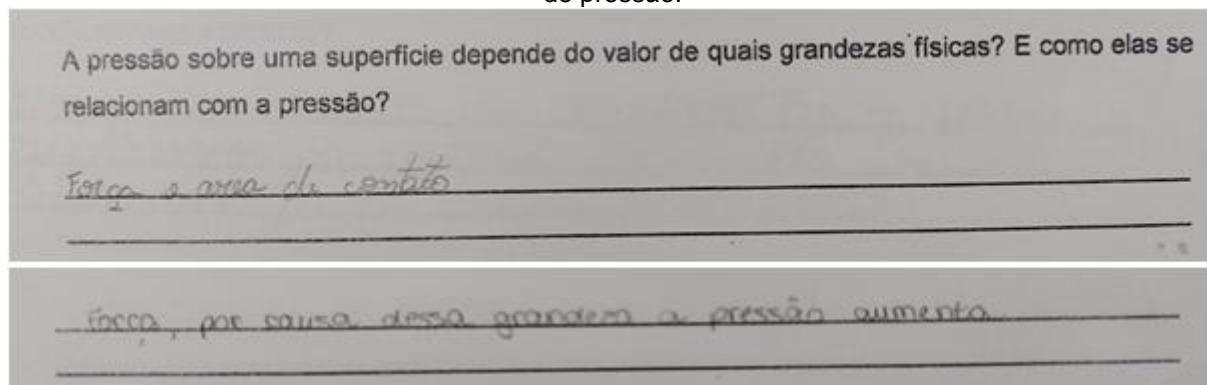 de pressão.
A pressão sobre uma superfície depende do valor de quais grandezas físicas? E como elas se
relacionam com a pressão?
Força e area de contato
Força, por causa dessa grandeza a pressão aumenta